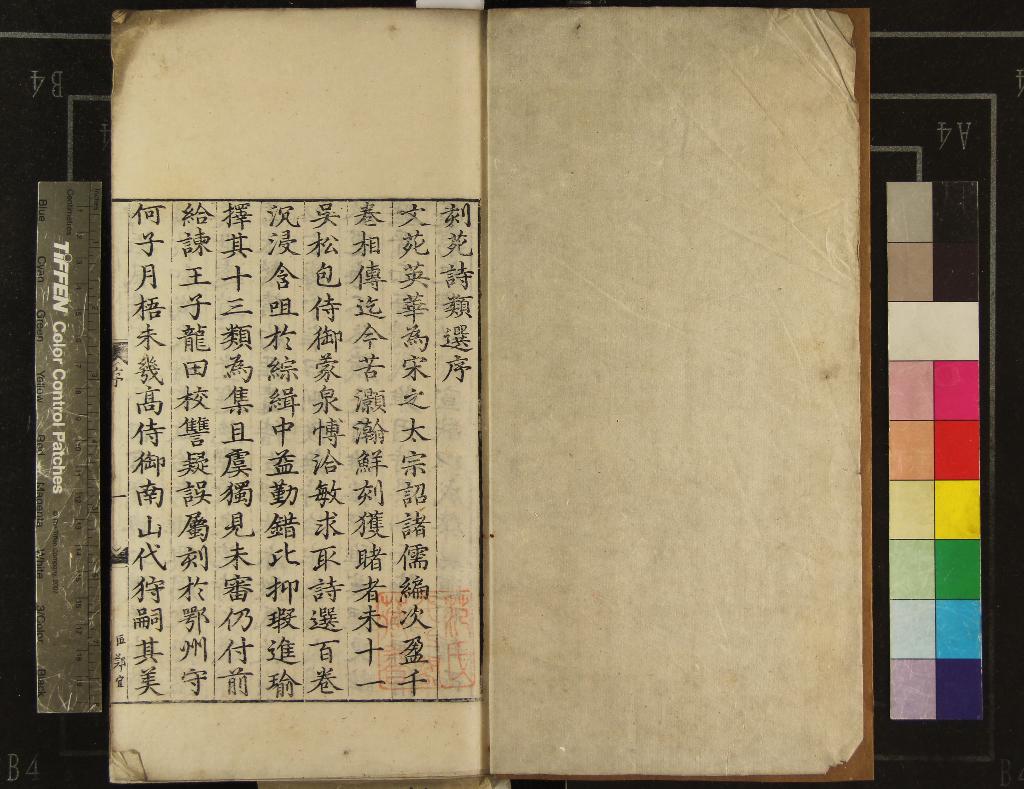 刻苑詩類選序
文苑英華為宋之太宗詔諸儒編次盈千
卷相傳迄今苦灝瀚鮮刻獲睹者未十一
吳松包侍御蒙泉愽洽敏求取詩選百卷
沉浸含咀於綜緝中益勤錯比抑瑕進瑜
擇其十三類為集且虞獨見未審仍付前
給諫王子龍田校讐疑誤屬刻於鄂州守
何子月梧未幾髙侍御南山代狩嗣其美
序
一
B4
A4
B4
TIFFEN Color Control Patches
Centimetres
Inches
Blue
Cyan
Green
Yellow
Red
Magenta
White
3/Color
Black